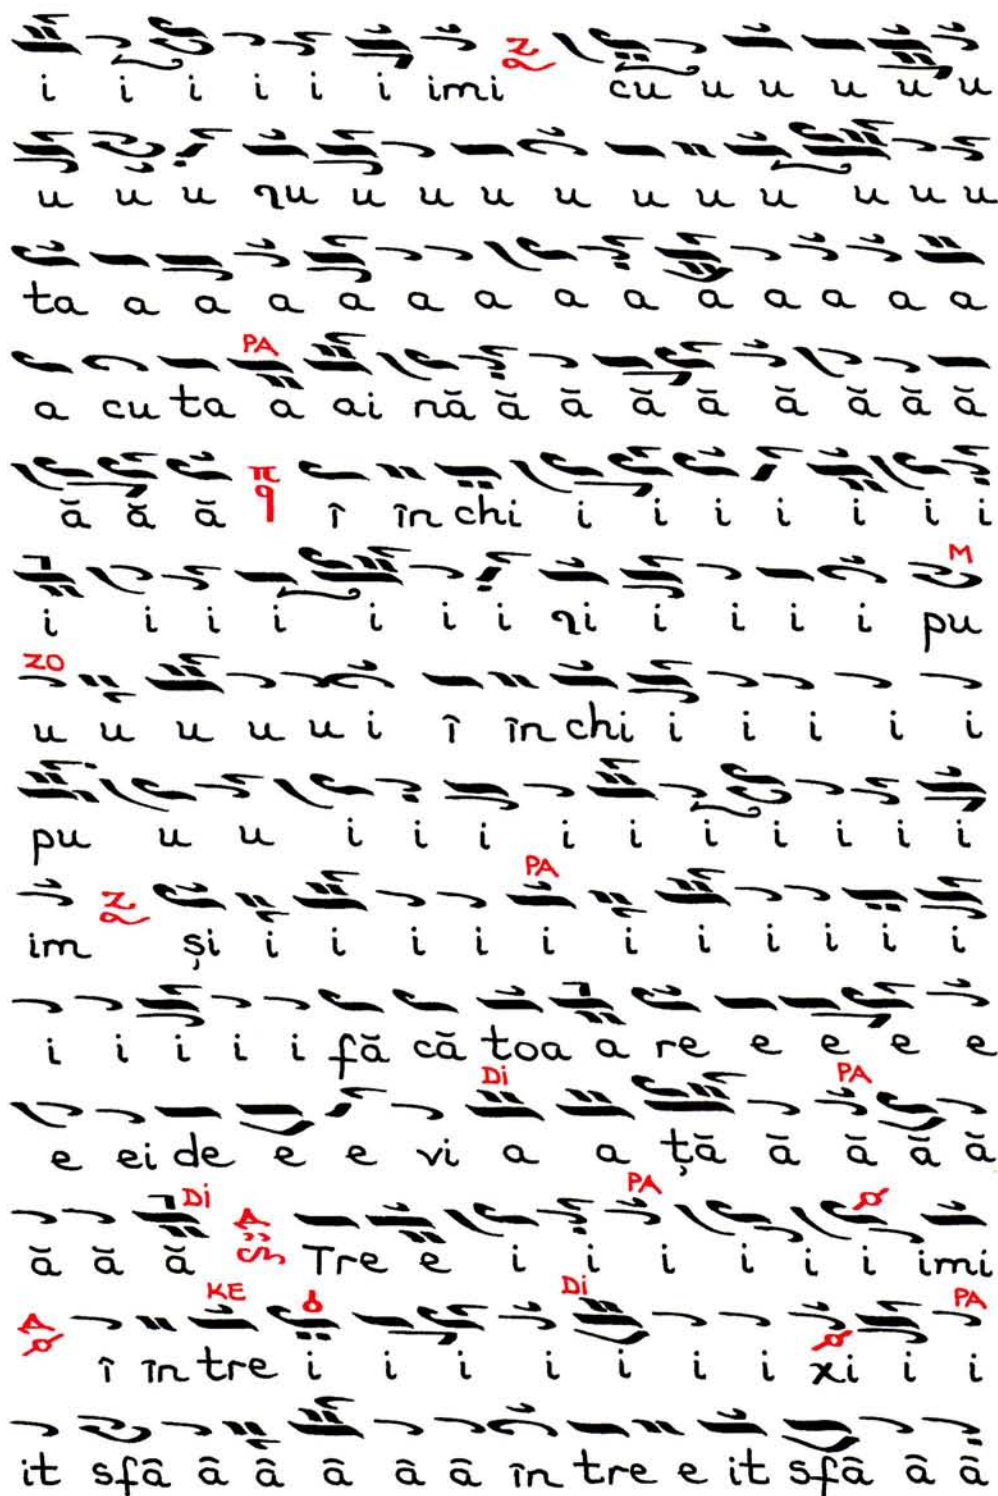 i i i i i i imi cu u u u u u
u u u ɿu u u u u u u u u u u
ta a a a a a a a a a a a a a
PA
a cu ta a ai nă ă ă ă ă ă ă ă ă
ă ă ă π q î în chi i i i i i i i
M
i i i i i i i ɿi i i i i pu
ZO
u u u u u i î în chi i i i i i
pu u u i i i i i i i i i i
PA
im Z și i i i i i i i i i i i
i i i i i fă că toa a re e e e e
Di PA
e ei de e e vi a a ță ă ă ă ă
Di PA
ă ă ă Tre e i i i i i i imi
KE Di PA
î în tre i i i i i i i xi i i
it sfâ â â â â â în tre e it sfâ â â